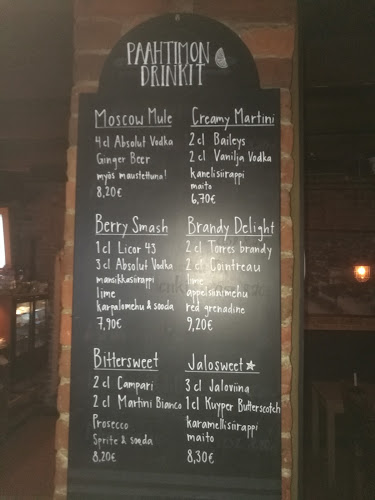 PAAHTIMON
DRINKIT
Moscow Mule
4 cl Absolut Vodka
Ginger Beer
myös maustettuna!
8,20€
Creamy Martini
2 cl Baileys
2 cl Vanilja Vodka
kanelisiirappi
maito
6,70€
Berry Smash
1 cl Licor 43
3 cl Absolut Vodka
mansikkasiirappi
lime
karpalomehu & sooda
7,90€
Brandy Delight
2 cl Torres brandy
2 cl Cointreau
lime
appelsiinimehu
red grenadine
9,20€
Bittersweet
2 cl Campari
2 cl Martini Bianco
Prosecco
Sprite & sooda
8,20€
Jalosweet
3 cl Jaloviina
1 cl Kuyper Butterscotch
karamellisiirappi
maito
8,30€